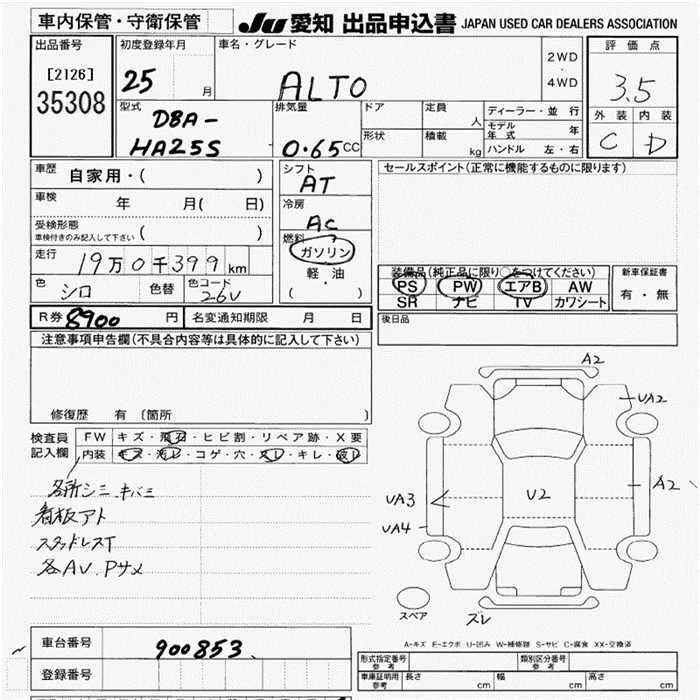 車内保管・守衛保管
JU 愛知 出品申込書 JAPAN USED CAR DEALERS ASSOCIATION
出品番号
[2126]
35308
初度登録年月
25 月
車名・グレード
ALTO
2WD
・
4WD
評価点
3.5
外装 内装
C D
型式
DBA-
HA25S
排気量
0.65CC
ドア
形状
定員 人
積載 kg
ディーラー・並行
モデル年式 年
ハンドル 左・右
車歴 自家用・( )
車検 年 月( 日)
受検形態
車検付きのみ記入して下さい ( )
走行 19万0千399km
色 シロ 色替 色コード 26U
シフト
AT
冷房
AC
燃料
ガソリン
軽・油
( )
セールスポイント(正常に機能するものに限ります)
装備品(純正品に限り○をつけてください)
PS PW エアB AW
SR ナビ TV カワシート
新車保証書
有・無
後日品
R券 8900 円 名変通知期限 月 日
注意事項申告欄(不具合内容等は具体的に記入して下さい)
修復歴 有 〔箇所 〕
検査員記入欄
FW キズ・飛石・ヒビ割・リペア跡・X要
内装 キズ・汚レ・コゲ・穴・スレ・キレ・破レ
各所シミ.キバミ
看板アト
スタッドレスT
各AU.Pサメ
A2
UA2
A2
U2
UA3
UA4
スペア
ズレ
A-キズ E-エクボ U-凹み W-補修跡 S-サビ C-腐食 XX-交換済
車台番号 900853
登録番号
形式指定番号 参考
類別区分番号 参考
車庫証明用 参考 長さ cm 幅 cm 高さ cm